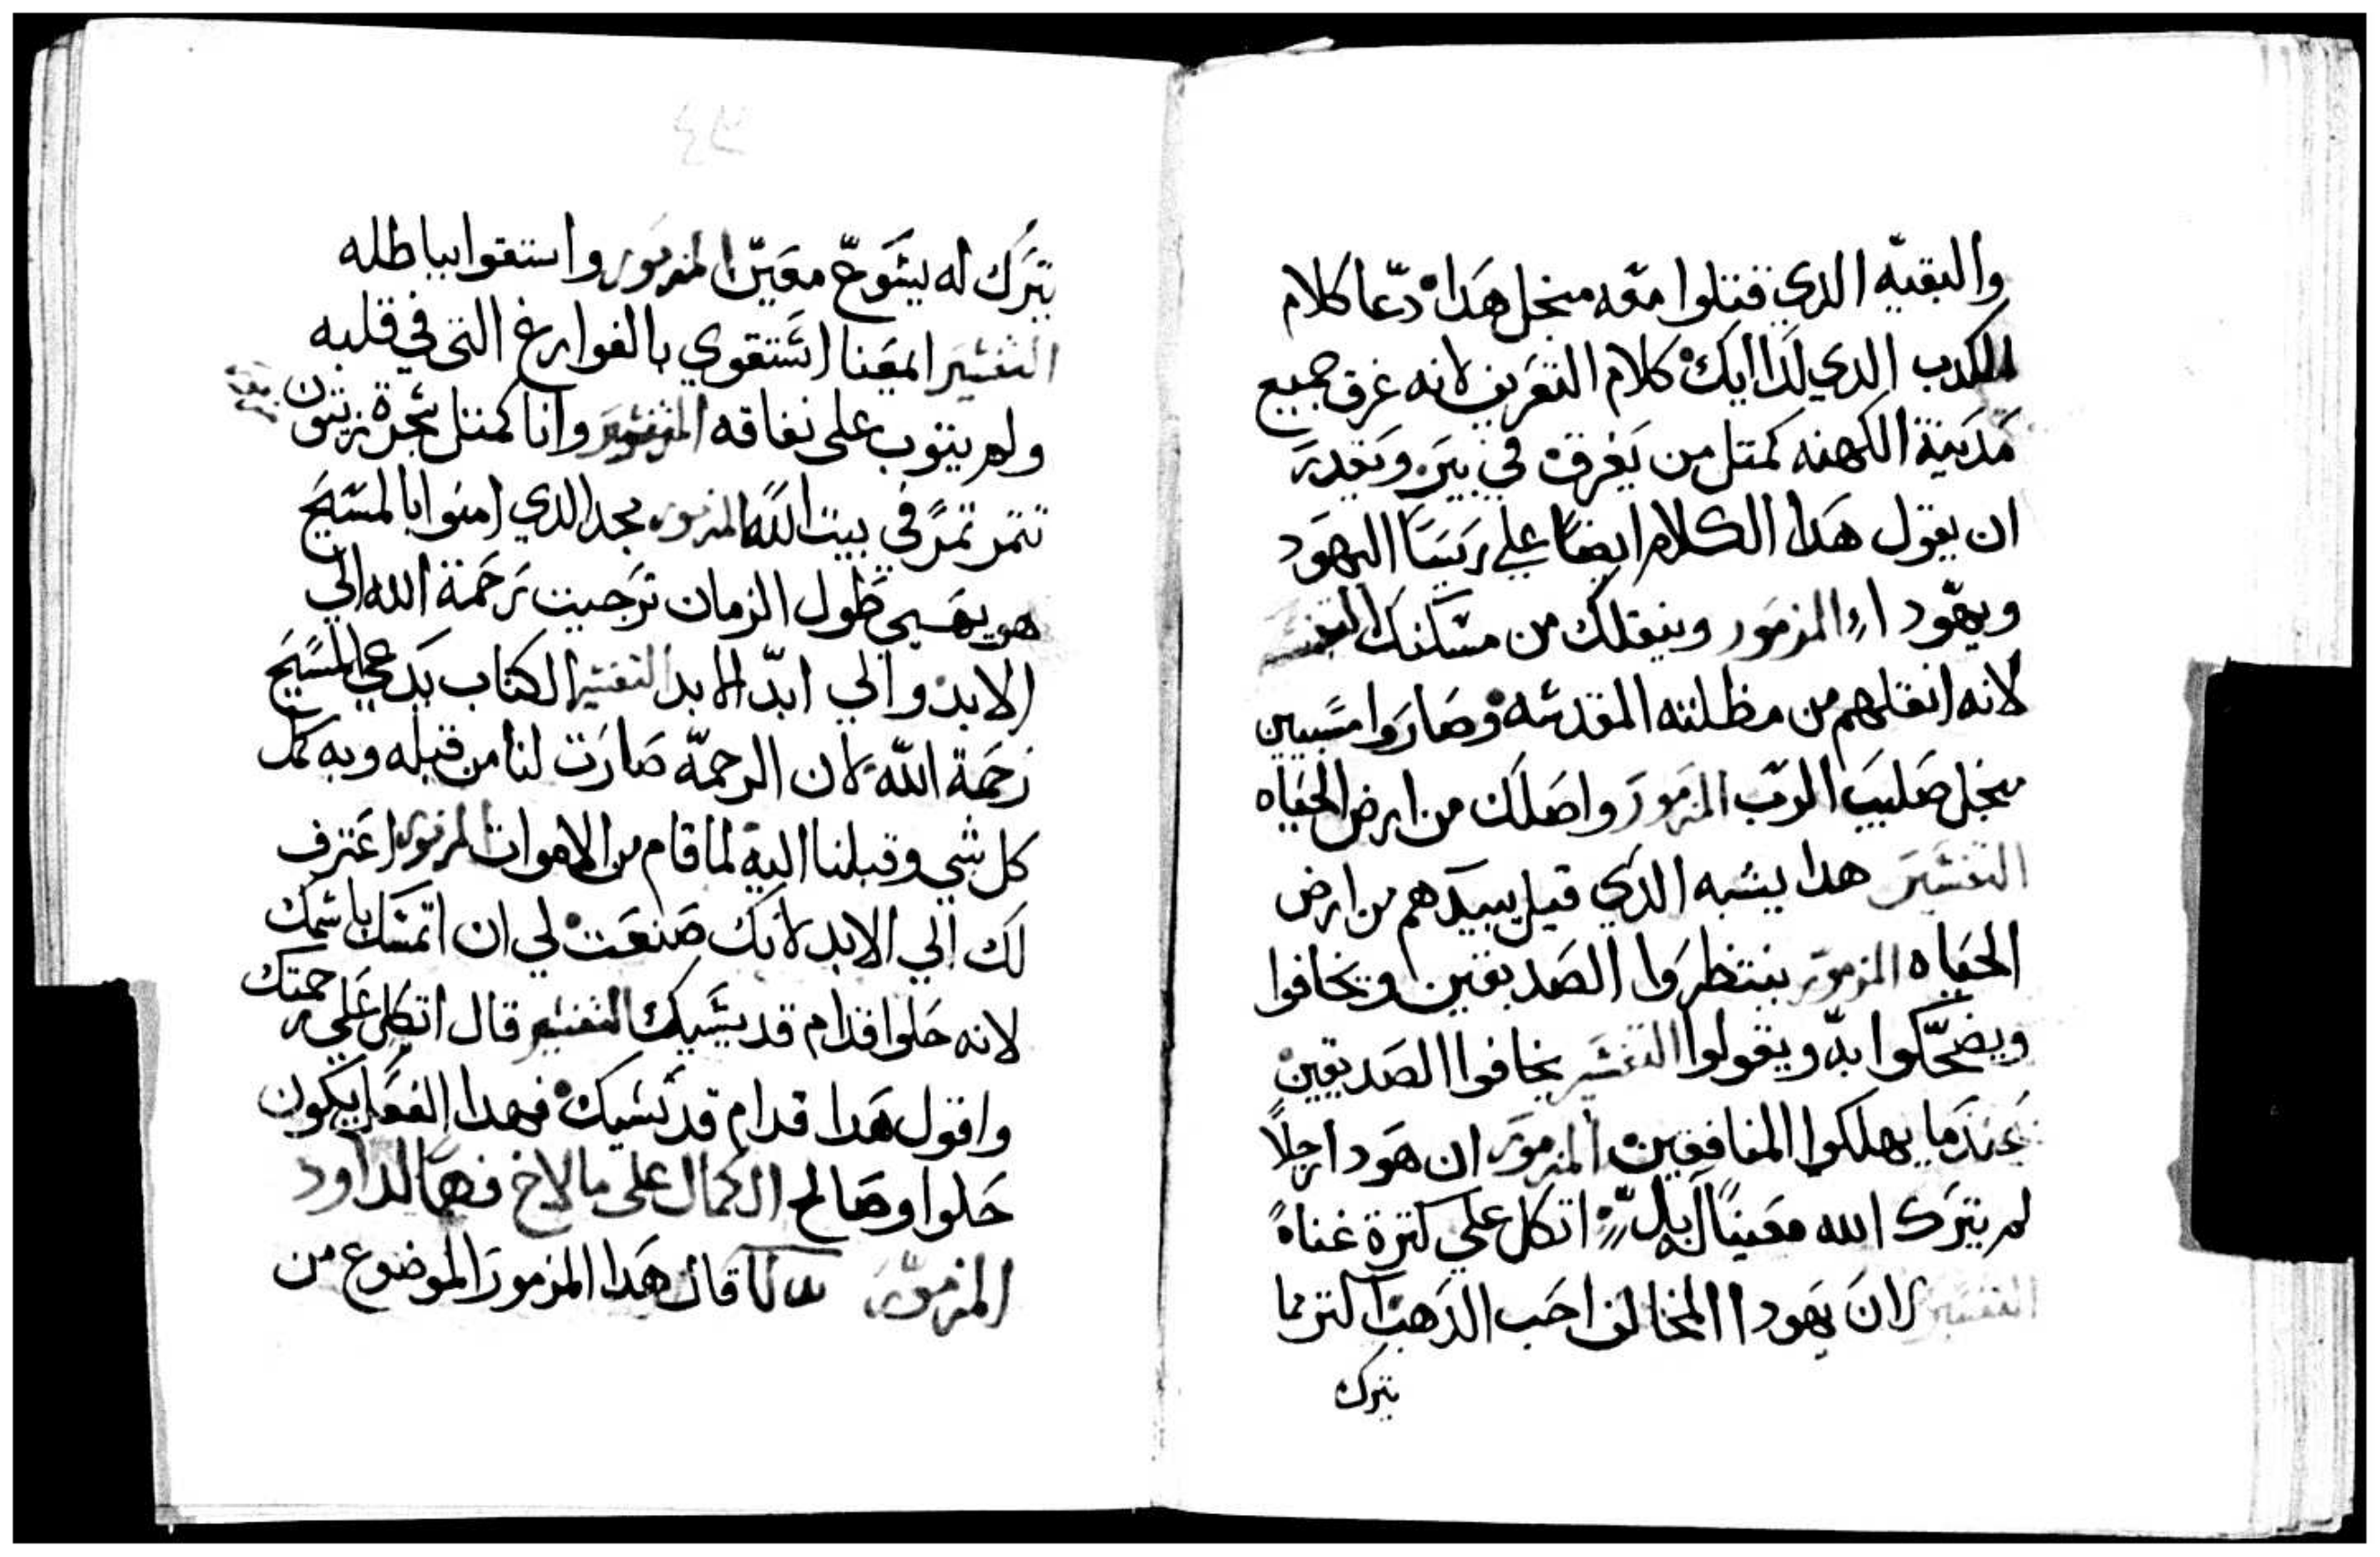 والبقيه الدي قتلوا معه منجل هدا دعا كلام
الكدب الدي لدالك كلام التغريق لانه غرق جميع
مدينة الكهنه كمتل من يغرق في بير ويقدر
ان يقول هدا الكلام ايضا علي ريسا اليهود
ويهودا المزمور وينقلك من مسكنك التفسير
لانه انقلهم من مظلته المقدسه وصاروا مسبيين
منجل صليب الرب المزمور واصلك من ارض الحياه
التفسير هدا يشبه الدي قيل يبيدهم من ارض
الحياه المزمور ينتظروا الصديقين ويخافوا
ويضحكوا به ويقولوا التفسير يخافوا الصديقين
عندما يهلكوا المنافقين المزمور ان هودا رجلا
لم يترك الله معينا له بل اتكل علي كترة غناه
التفسير لان يهودا المخالف احب الدهب اكتر مما
يترك
٤٣
يترك له يشوع معين المزمور واستقوا بباطله
التفسير المعنا استقوي بالفوارغ التي في قلبه
ولم يتوب على نفاقه وانا كمتل شجرة زيتون
تتمر تمر في بيت الله المزمور مجد الدي امنوا بالمسيح
هو يهيي طول الزمان ترجيت رحمة الله الي
الابد والي ابد الابد التفسير الكتاب يدعي المسيح
رحمة الله لان الرحمه صارت لنا من قبله وبه كمل
كل شي وقبلنا اليه لما قام من الاموات المزمور اعترف
لك الي الابد لانك صنعت لي ان اتمسك باسمك
لانه حلوا قدام قديسيك التفسير قال اتكل علي رحمتك
واقول هدا قدام قديسيك فهدا الفعل يكون
حلوا وصالح الكمال على مالاخ فهما لداود
المزمور قال هدا المزمور الموضوع من